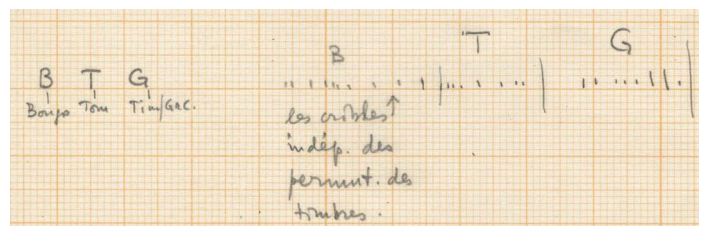 B T G
Bongo Tom Tim/GrC.
B T G
les cribles
indép. des
permut. des
timbres.